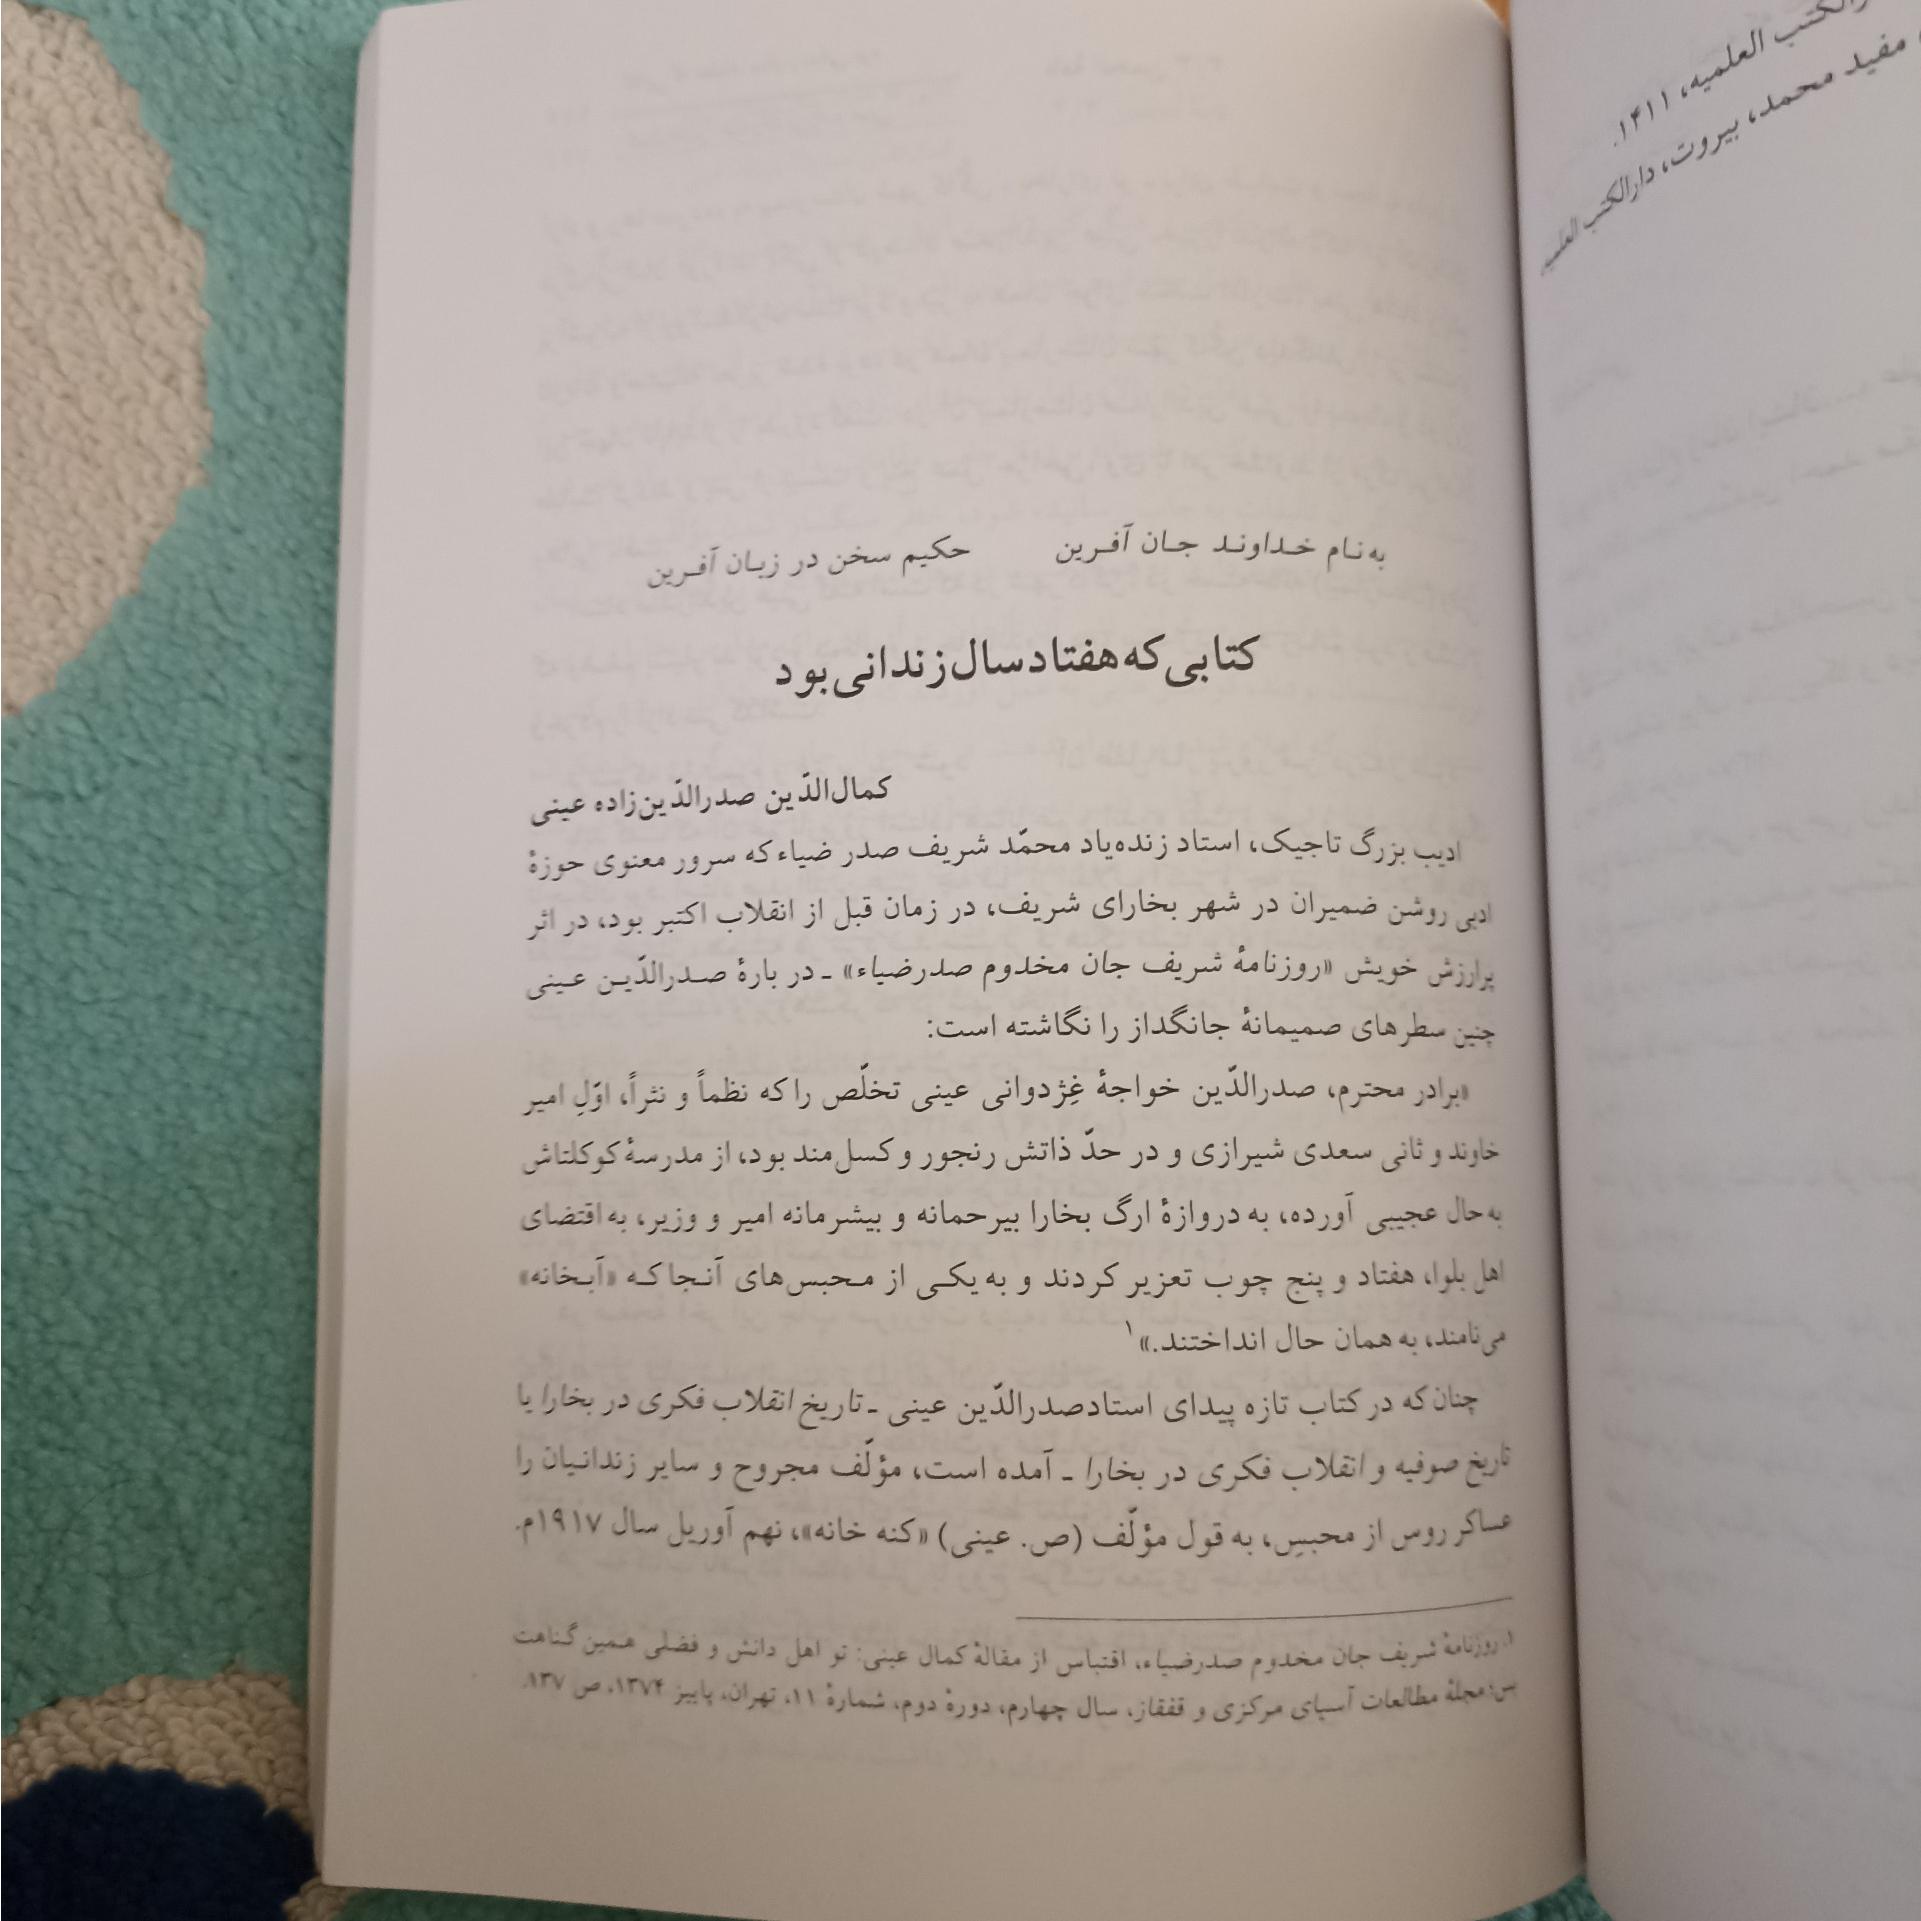 به نام خداوند جان آفرین        حکیم سخن در زبان آفرین
کتابی که هفتاد سال زندانی بود
کمال‌الدّین صدرالدّین‌زاده عینی
ادیب بزرگ تاجیک، استاد زنده‌یاد محمّد شریف صدر ضیاء که سرور معنوی حوزهٔ
ادبی روشن ضمیران در شهر بخارای شریف، در زمان قبل از انقلاب اکتبر بود، در اثر
پرارزش خویش «روزنامهٔ شریف جان مخدوم صدرضیاء» ـ در بارهٔ صدرالدّین عینی
چنین سطرهای صمیمانهٔ جانگداز را نگاشته است:
«برادر محترم، صدرالدّین خواجهٔ غِژدوانی عینی تخلّص را که نظماً و نثراً، اوّلِ امیر
خاوند و ثانی سعدی شیرازی و در حدّ ذاتش رنجور و کسل‌مند بود، از مدرسهٔ کوکلتاش
به حال عجیبی آورده، به دروازهٔ ارگ بخارا بیرحمانه و بیشرمانه امیر و وزیر، به اقتضای
اهل بلوا، هفتاد و پنج چوب تعزیر کردند و به یکی از محبس‌های آنجا که «آبخانه»
می‌نامند، به همان حال انداختند.»۱
چنان که در کتاب تازه پیدای استاد صدرالدّین عینی ـ تاریخ انقلاب فکری در بخارا یا
تاریخ صوفیه و انقلاب فکری در بخارا ـ آمده است، مؤلّف مجروح و سایر زندانیان را
عساکر روس از محبسِ، به قول مؤلّف (ص. عینی) «کنه خانه»، نهم آوریل سال ۱۹۱۷م.
۱. روزنامهٔ شریف جان مخدوم صدرضیاء، اقتباس از مقالهٔ کمال عینی: تو اهل دانش و فضلی همین گناهت
بس؛ مجلهٔ مطالعات آسیای مرکزی و قفقاز، سال چهارم، دورهٔ دوم، شمارهٔ ۱۱، تهران، پاییز ۱۳۷۴، ص ۱۳۷.
دارالکتب العلمیه، ۱۴۱۱.
مفید محمد، بیروت، دارالکتب العلمیه